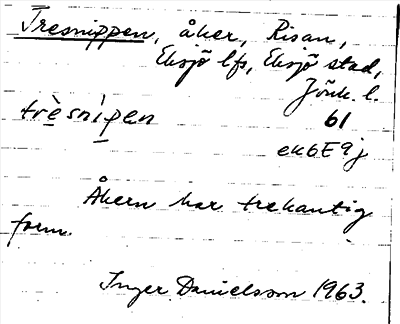 Tresnippen, åker, Risan,
Eksjö lfs, Eksjö stad,
Jönk. l.
trèsnìpen 61
ek6E9j
Åkern har trekantig
form.
Inger Danielsson 1963.